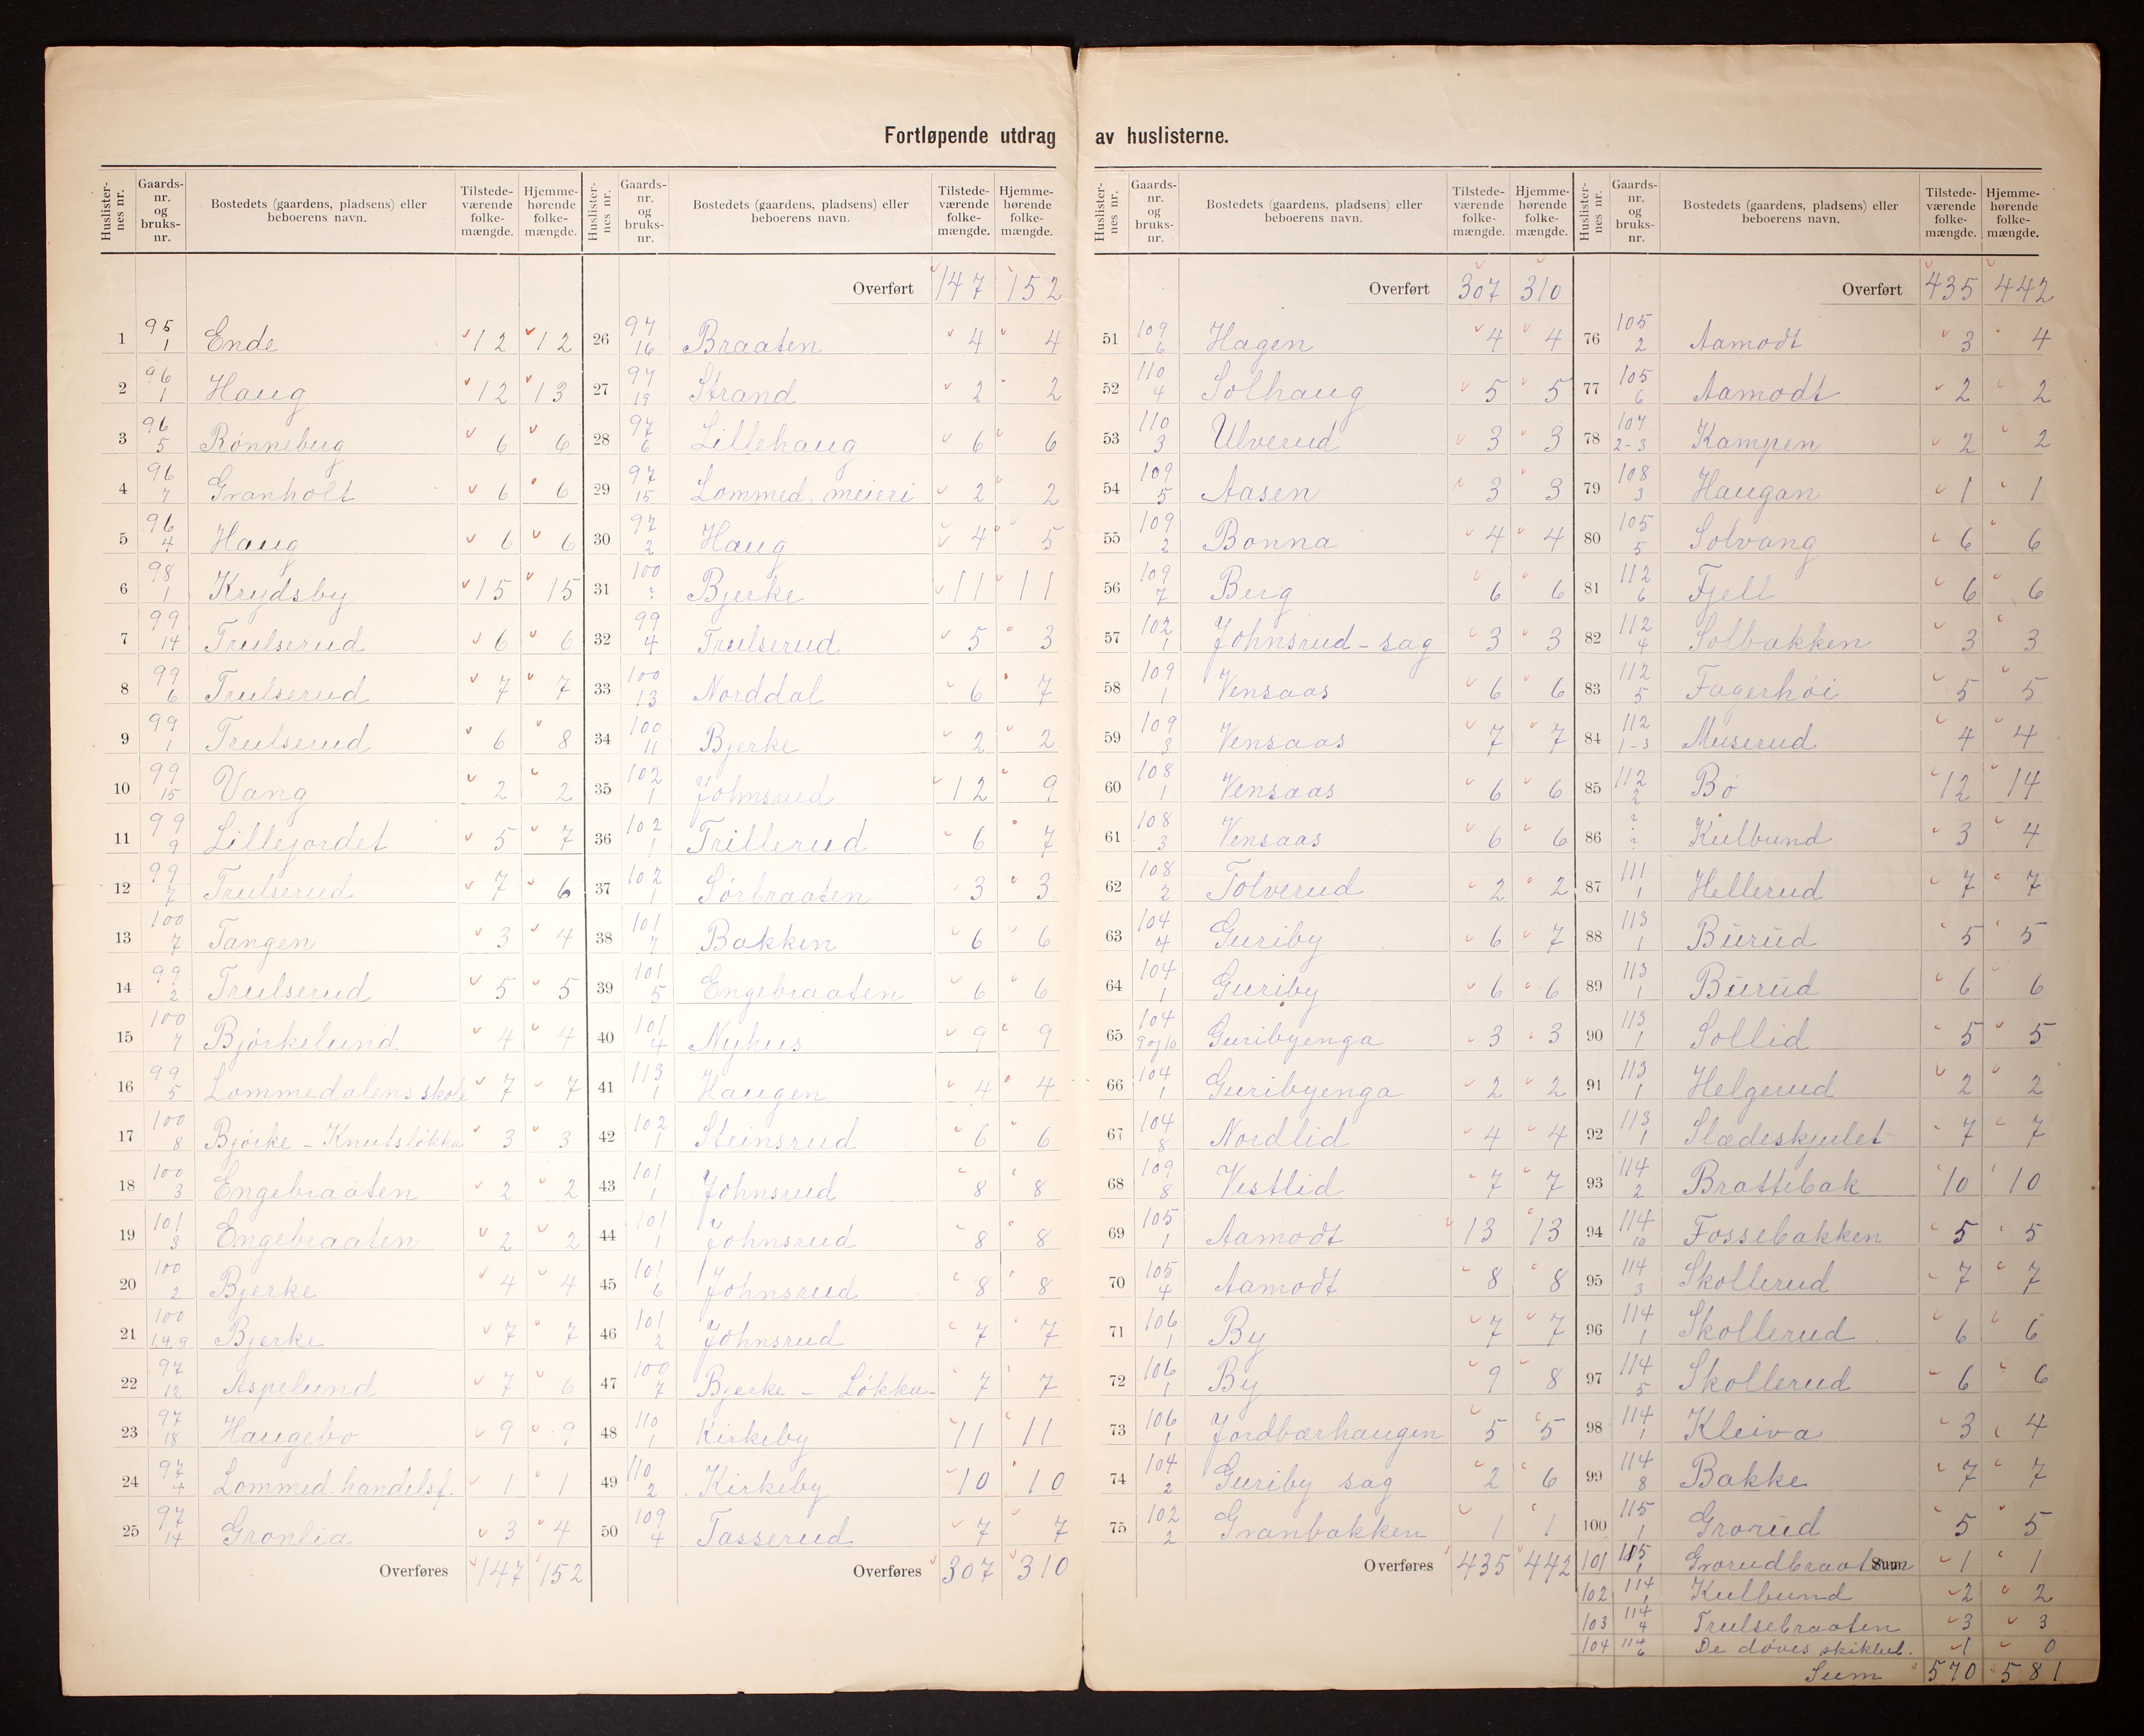 Fortløpende utdrag av huslisterne.
Huslisternes nr. | Gaards-nr. og bruks-nr. | Bostedets (gaardens, pladsens) eller beboerens navn. | Tilstede-værende folke-mængde. | Hjemme-hørende folke-mængde.
1 | 95 1 | Ende | 12 | 12
2 | 96 1 | Haug | 12 | 13
3 | 96 5 | Rønneberg | 6 | 6
4 | 96 7 | Granholt | 6 | 6
5 | 96 4 | Haug | 6 | 6
6 | 98 1 | Krydsby | 15 | 15
7 | 99 14 | Trulserud | 6 | 6
8 | 99 6 | Trulserud | 7 | 7
9 | 99 1 | Trulserud | 6 | 8
10 | 99 15 | Vang | 2 | 2
11 | 99 9 | Lillejordet | 5 | 7
12 | 99 7 | Trulserud | 7 | 6
13 | 100 7 | Tangen | 3 | 4
14 | 99 2 | Trulserud | 5 | 5
15 | 100 7 | Bjørkelund | 4 | 4
16 | 99 5 | Lommedalens skole | 7 | 7
17 | 100 8 | Bjørke - Knutsløkka | 3 | 3
18 | 100 3 | Engebraaten | 2 | 2
19 | 101 3 | Engebraaten | 2 | 2
20 | 100 2 | Bjerke | 4 | 4
21 | 100 1,4,9 | Bjerke | 7 | 7
22 | 97 12 | Aspelund | 7 | 6
23 | 97 18 | Haugebo | 9 | 9
24 | 97 4 | Lommed. handelsf. | 1 | 1
25 | 97 14 | Grønlia | 3 | 4
Overføres | 147 | 152
Huslisternes nr. | Gaards-nr. og bruks-nr. | Bostedets (gaardens, pladsens) eller beboerens navn. | Tilstede-værende folke-mængde. | Hjemme-hørende folke-mængde.
Overført | 147 | 152
26 | 97 16 | Braaten | 4 | 4
27 | 97 19 | Strand | 2 | 2
28 | 97 6 | Lillehaug | 6 | 6
29 | 97 15 | Lommed. meieri | 2 | 2
30 | 97 2 | Haug | 4 | 5
31 | 100 ? | Bjerke | 11 | 11
32 | 99 4 | Trulserud | 5 | 3
33 | 100 13 | Norddal | 6 | 7
34 | 100 11 | Bjerke | 2 | 2
35 | 102 1 | Johnsrud | 12 | 9
36 | 102 1 | Trillerud | 6 | 7
37 | 102 1 | Sørbraaten | 3 | 3
38 | 101 7 | Bakken | 6 | 6
39 | 101 5 | Engebraaten | 6 | 6
40 | 101 4 | Nyhus | 9 | 9
41 | 113 1 | Haugen | 4 | 4
42 | 102 1 | Steinsrud | 6 | 6
43 | 101 1 | Johnsrud | 8 | 8
44 | 101 1 | Johnsrud | 8 | 8
45 | 101 6 | Johnsrud | 8 | 8
46 | 101 2 | Johnsrud | 7 | 7
47 | 100 7 | Bjerke - Løkka- | 7 | 7
48 | 110 1 | Kirkeby | 11 | 11
49 | 110 2 | Kirkeby | 10 | 10
50 | 109 4 | Tasserud | 7 | 7
Overføres | 307 | 310
Huslisternes nr. | Gaards-nr. og bruks-nr. | Bostedets (gaardens, pladsens) eller beboerens navn. | Tilstede-værende folke-mængde. | Hjemme-hørende folke-mængde.
Overført | 307 | 310
51 | 109 6 | Hagen | 4 | 4
52 | 110 4 | Solhaug | 5 | 5
53 | 110 3 | Ulverud | 3 | 3
54 | 109 5 | Aasen | 3 | 3
55 | 109 2 | Bonna | 4 | 4
56 | 109 7 | Berg | 6 | 6
57 | 102 1 | Johnsrud - sag | 3 | 3
58 | 109 1 | Vensaas | 6 | 6
59 | 109 3 | Vensaas | 7 | 7
60 | 108 1 | Vensaas | 6 | 6
61 | 108 3 | Vensaas | 6 | 6
62 | 108 2 | Tolverud | 2 | 2
63 | 104 4 | Guriby | 6 | 7
64 | 104 1 | Guriby | 6 | 6
65 | 104 9 og 10 | Guribyenga | 3 | 3
66 | 104 1 | Guribyenga | 2 | 2
67 | 104 8 | Nordlid | 4 | 4
68 | 109 8 | Vestlid | 7 | 7
69 | 105 1 | Aamodt | 13 | 13
70 | 105 4 | Aamodt | 8 | 8
71 | 106 1 | By | 7 | 7
72 | 106 1 | By | 9 | 8
73 | 106 1 | Jordbærhaugen | 5 | 5
74 | 104 2 | Guriby sag | 2 | 6
75 | 102 2 | Granbakken | 1 | 1
Overføres | 435 | 442
Huslisternes nr. | Gaards-nr. og bruks-nr. | Bostedets (gaardens, pladsens) eller beboerens navn. | Tilstede-værende folke-mængde. | Hjemme-hørende folke-mængde.
Overført | 435 | 442
76 | 105 2 | Aamodt | 3 | 4
77 | 105 6 | Aamodt | 2 | 2
78 | 107 2-3 | Kampen | 2 | 2
79 | 108 3 | Haugan | 1 | 1
80 | 105 5 | Solvang | 6 | 6
81 | 112 6 | Fjell | 6 | 6
82 | 112 4 | Solbakken | 3 | 3
83 | 112 5 | Fagerhøi | 5 | 5
84 | 112 1-3 | Muserud | 4 | 4
85 | 112 2 | Bø | 12 | 14
86 | ? ? | Kulbund | 3 | 4
87 | 111 1 | Hellerud | 7 | 7
88 | 113 1 | Burud | 5 | 5
89 | 113 1 | Burud | 6 | 6
90 | 113 1 | Sollid | 5 | 5
91 | 113 1 | Helgerud | 2 | 2
92 | 113 1 | Slædeskjulet | 7 | 7
93 | 114 2 | Brattebak | 10 | 10
94 | 114 10 | Fossebakken | 5 | 5
95 | 114 3 | Skollerud | 7 | 7
96 | 114 1 | Skollerud | 6 | 6
97 | 114 5 | Skollerud | 6 | 6
98 | 114 1 | Kleiva | 3 | 4
99 | 114 8 | Bakke | 7 | 7
100 | 115 1 | Grorud | 5 | 5
101 | 115 1 | Grorudbraaten Sum | 1 | 1
102 | 114 1 | Kulbund | 2 | 2
103 | 114 4 | Trulsebraaten | 3 | 3
104 | 114 6 | De døves skiklub. | 1 | 0
Sum | 570 | 581